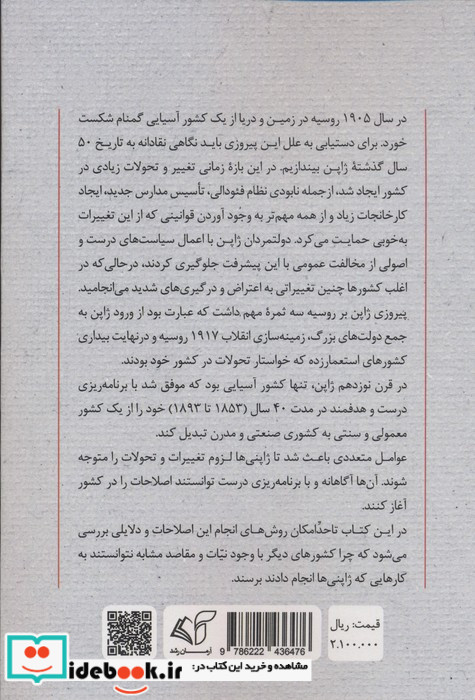 در سال ۱۹۰۵ روسیه در زمین و دریا از یک کشور آسیایی گمنام شکست
خورد. برای دستیابی به علل این پیروزی باید نگاهی نقادانه به تاریخ ۵۰
سال گذشتهٔ ژاپن بیندازیم. در این بازهٔ زمانی تغییر و تحولات زیادی در
کشور ایجاد شد، ازجمله نابودی نظام فئودالی، تأسیس مدارس جدید، ایجاد
کارخانجات زیاد و از همه مهم‌تر به وجود آوردن قوانینی که از این تغییرات
به‌خوبی حمایت می‌کرد. دولتمردان ژاپن با اعمال سیاست‌های درست و
اصولی از مخالفت عمومی با این پیشرفت جلوگیری کردند، درحالی‌که در
اغلب کشورها چنین تغییراتی به اعتراض و درگیری‌های شدید می‌انجامید.
پیروزی ژاپن بر روسیه سه ثمرهٔ مهم داشت که عبارت بود از ورود ژاپن به
جمع دولت‌های بزرگ، زمینه‌سازی انقلاب ۱۹۱۷ روسیه و درنهایت بیداری
کشورهای استعمارزده که خواستار تحولات در کشور خود بودند.
در قرن نوزدهم ژاپن، تنها کشور آسیایی بود که موفق شد با برنامه‌ریزی
درست و هدفمند در مدت ۴۰ سال (۱۸۵۳ تا ۱۸۹۳) خود را از یک کشور
معمولی و سنتی به کشوری صنعتی و مدرن تبدیل کند.
عوامل متعددی باعث شد تا ژاپنی‌ها لزوم تغییرات و تحولات را متوجه
شوند. آن‌ها آگاهانه و با برنامه‌ریزی درست توانستند اصلاحات را در کشور
آغاز کنند.
در این کتاب تاحدّامکان روش‌های انجام این اصلاحات و دلایلی بررسی
می‌شود که چرا کشورهای دیگر با وجود نیّات و مقاصد مشابه نتوانستند به
کارهایی که ژاپنی‌ها انجام دادند برسند.
قیمت: ریال
۲.۱۰۰.۰۰۰
9 786222 436476
آرمان رشد
مشاهده و خرید این کتاب در:
idebook.ir